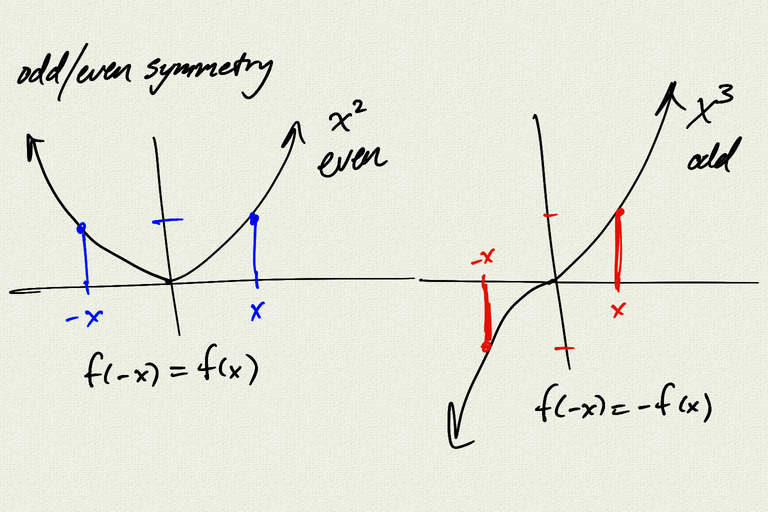 odd/even symmetry
x²
even
-x
x
f(-x) = f(x)
x³
odd
-x
x
f(-x) = -f(x)